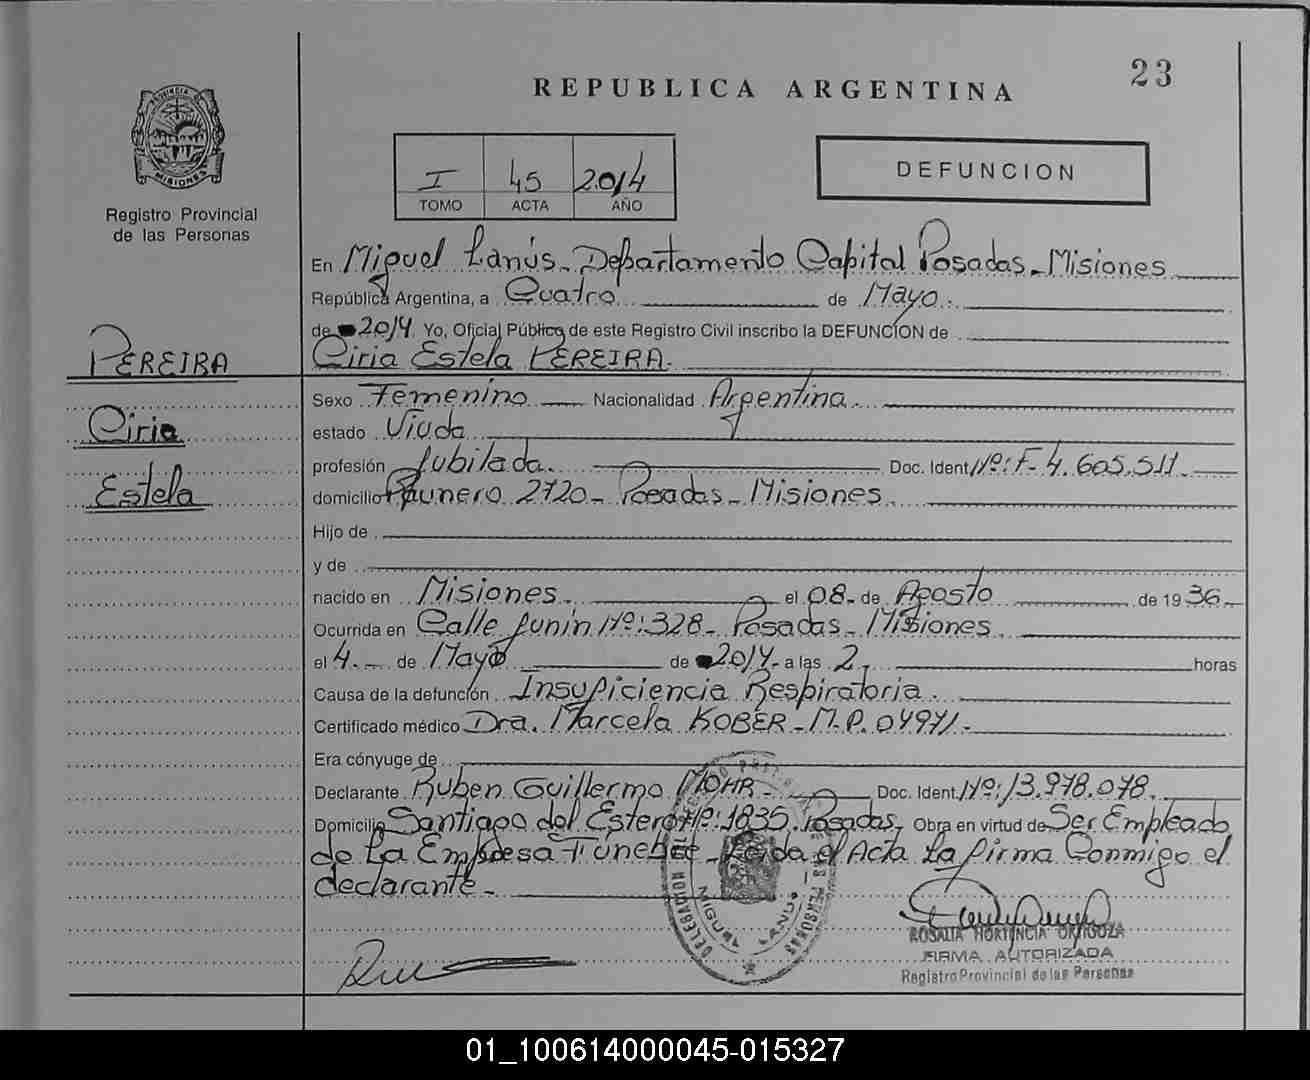 23
REPUBLICA ARGENTINA
PROVINCIA DE
MISIONES
Registro Provincial
de las Personas
I 45 2014
TOMO ACTA AÑO
DEFUNCION
En Miguel Lanús - Departamento Capital Posadas - Misiones
República Argentina, a Cuatro de Mayo.
de 2014 Yo, Oficial Público de este Registro Civil inscribo la DEFUNCION de
PEREIRA
Ciria Estela PEREIRA.
Sexo Femenino Nacionalidad Argentina.
Ciria
estado Viuda
profesión Jubilada. Doc. Ident Nº: F- 4.605.511
Estela
domicilio Paunero 2720 - Posadas - Misiones.
Hijo de
y de
nacido en Misiones. el 08- de Agosto de 19 36.
Ocurrida en Calle Junín Nº: 328 - Posadas - Misiones.
el 4. de Mayo de 2014 - a las 2, horas
Causa de la defunción Insuficiencia Respiratoria.
Certificado médico Dra. Marcela KOBER - M.P. 04971.-
Era cónyuge de
Declarante Ruben Guillermo MOHR - Doc. Ident. Nº: 13.978.078.
Domicilio Santiago del Estero Nº: 1835. Posadas, Obra en virtud de Ser Empleado
de La Empresa Fúnebre - Leida el Acta La firma Conmigo el
declarante -
MIGUEL LANUS
ROSALIA HORTENCIA ORTIGOZA
FIRMA AUTORIZADA
Registro Provincial de las Personas
01_100614000045-015327